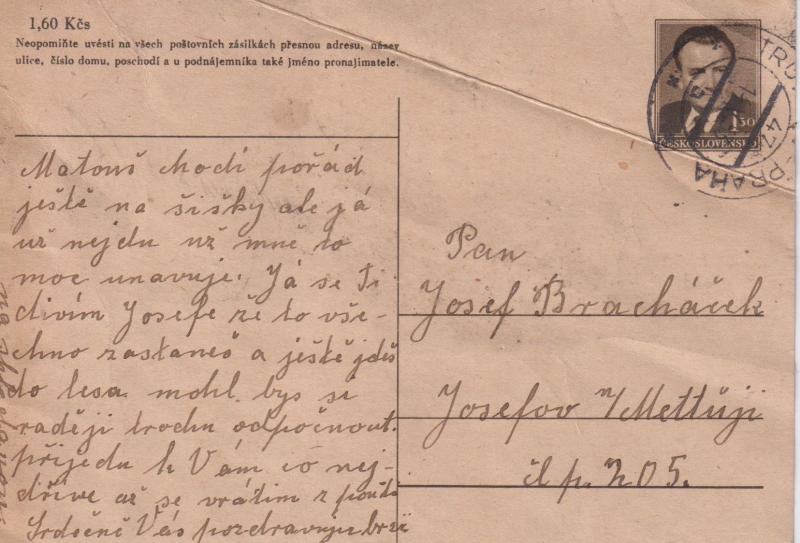 1,60 Kčs
Neopomiňte uvésti na všech poštovních zásilkách přesnou adresu, název
ulice, číslo domu, poschodí a u podnájemníka také jméno pronajimatele.
1 50
ČESKOSLOVENSKO
PRAHA
47
Matouš chodí pořád
ještě na šišky ale já
už nejdu už mně to
moc unavuje. Já se Ti
divím Josefe že to vše-
chno zastaneš a ještě jdeš
do lesa. mohl bys si
raději trochu odpočnout.
přijedu k Vám co nej-
dříve až se vrátím z
Srdečně Vás pozdravuje
Pan
Josef Bracháček
Josefov
čp. 205.